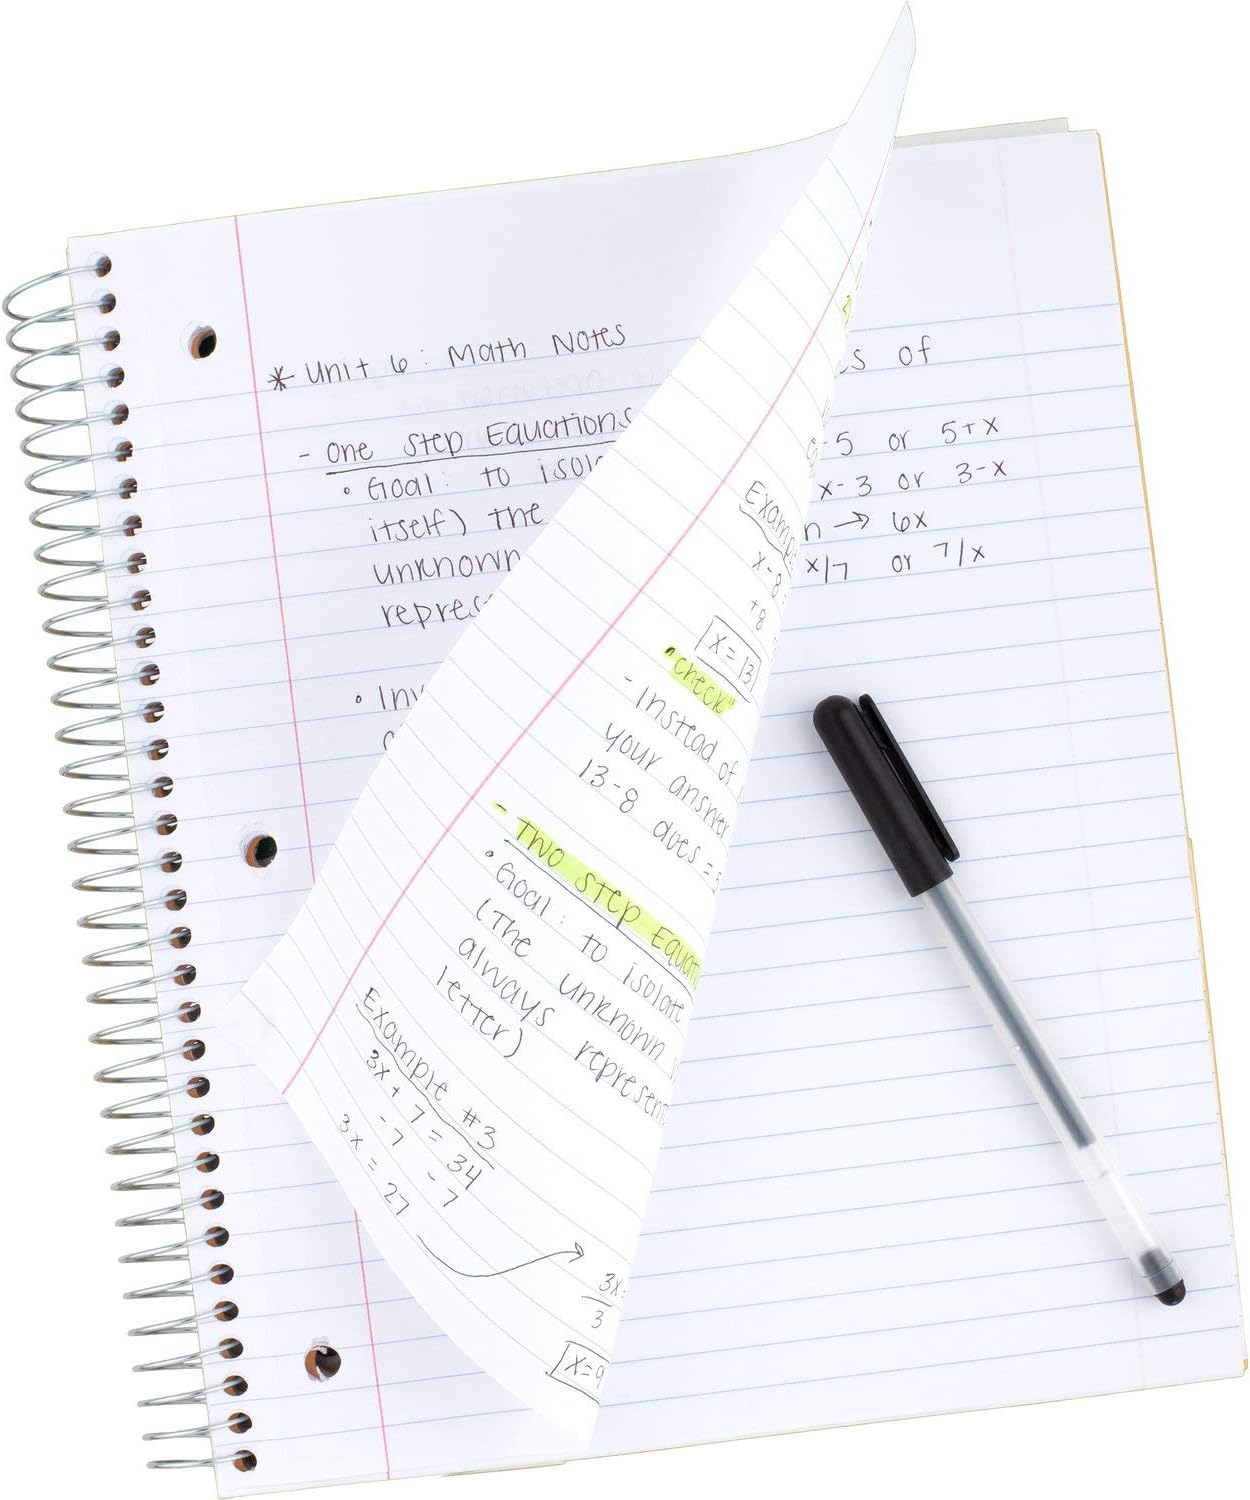 * Unit 6: Math Notes
- One Step Equations
• Goal: to
itself) the
unknown
• Inv
of
-5 or 5+x
x-3 or 3-x
→ 6x
x/7 or 7/x
x-8
+8
x = 13
"check"
- Instead of
your answer
13-8 does =
- Two Step
• Goal: to isolate
(the unknown
always
letter)
Example #3
3x + 7 = 34
-7 -7
3x = 27
3x
3
x=9